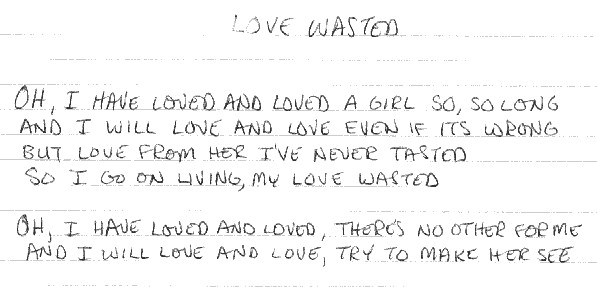 LOVE WASTED
OH, I HAVE LOVED AND LOVED A GIRL SO, SO LONG
AND I WILL LOVE AND LOVE EVEN IF ITS WRONG
BUT LOVE FROM HER I'VE NEVER TASTED
SO I GO ON LIVING, MY LOVE WASTED
OH, I HAVE LOVED AND LOVED, THERE'S NO OTHER FOR ME
AND I WILL LOVE AND LOVE, TRY TO MAKE HER SEE